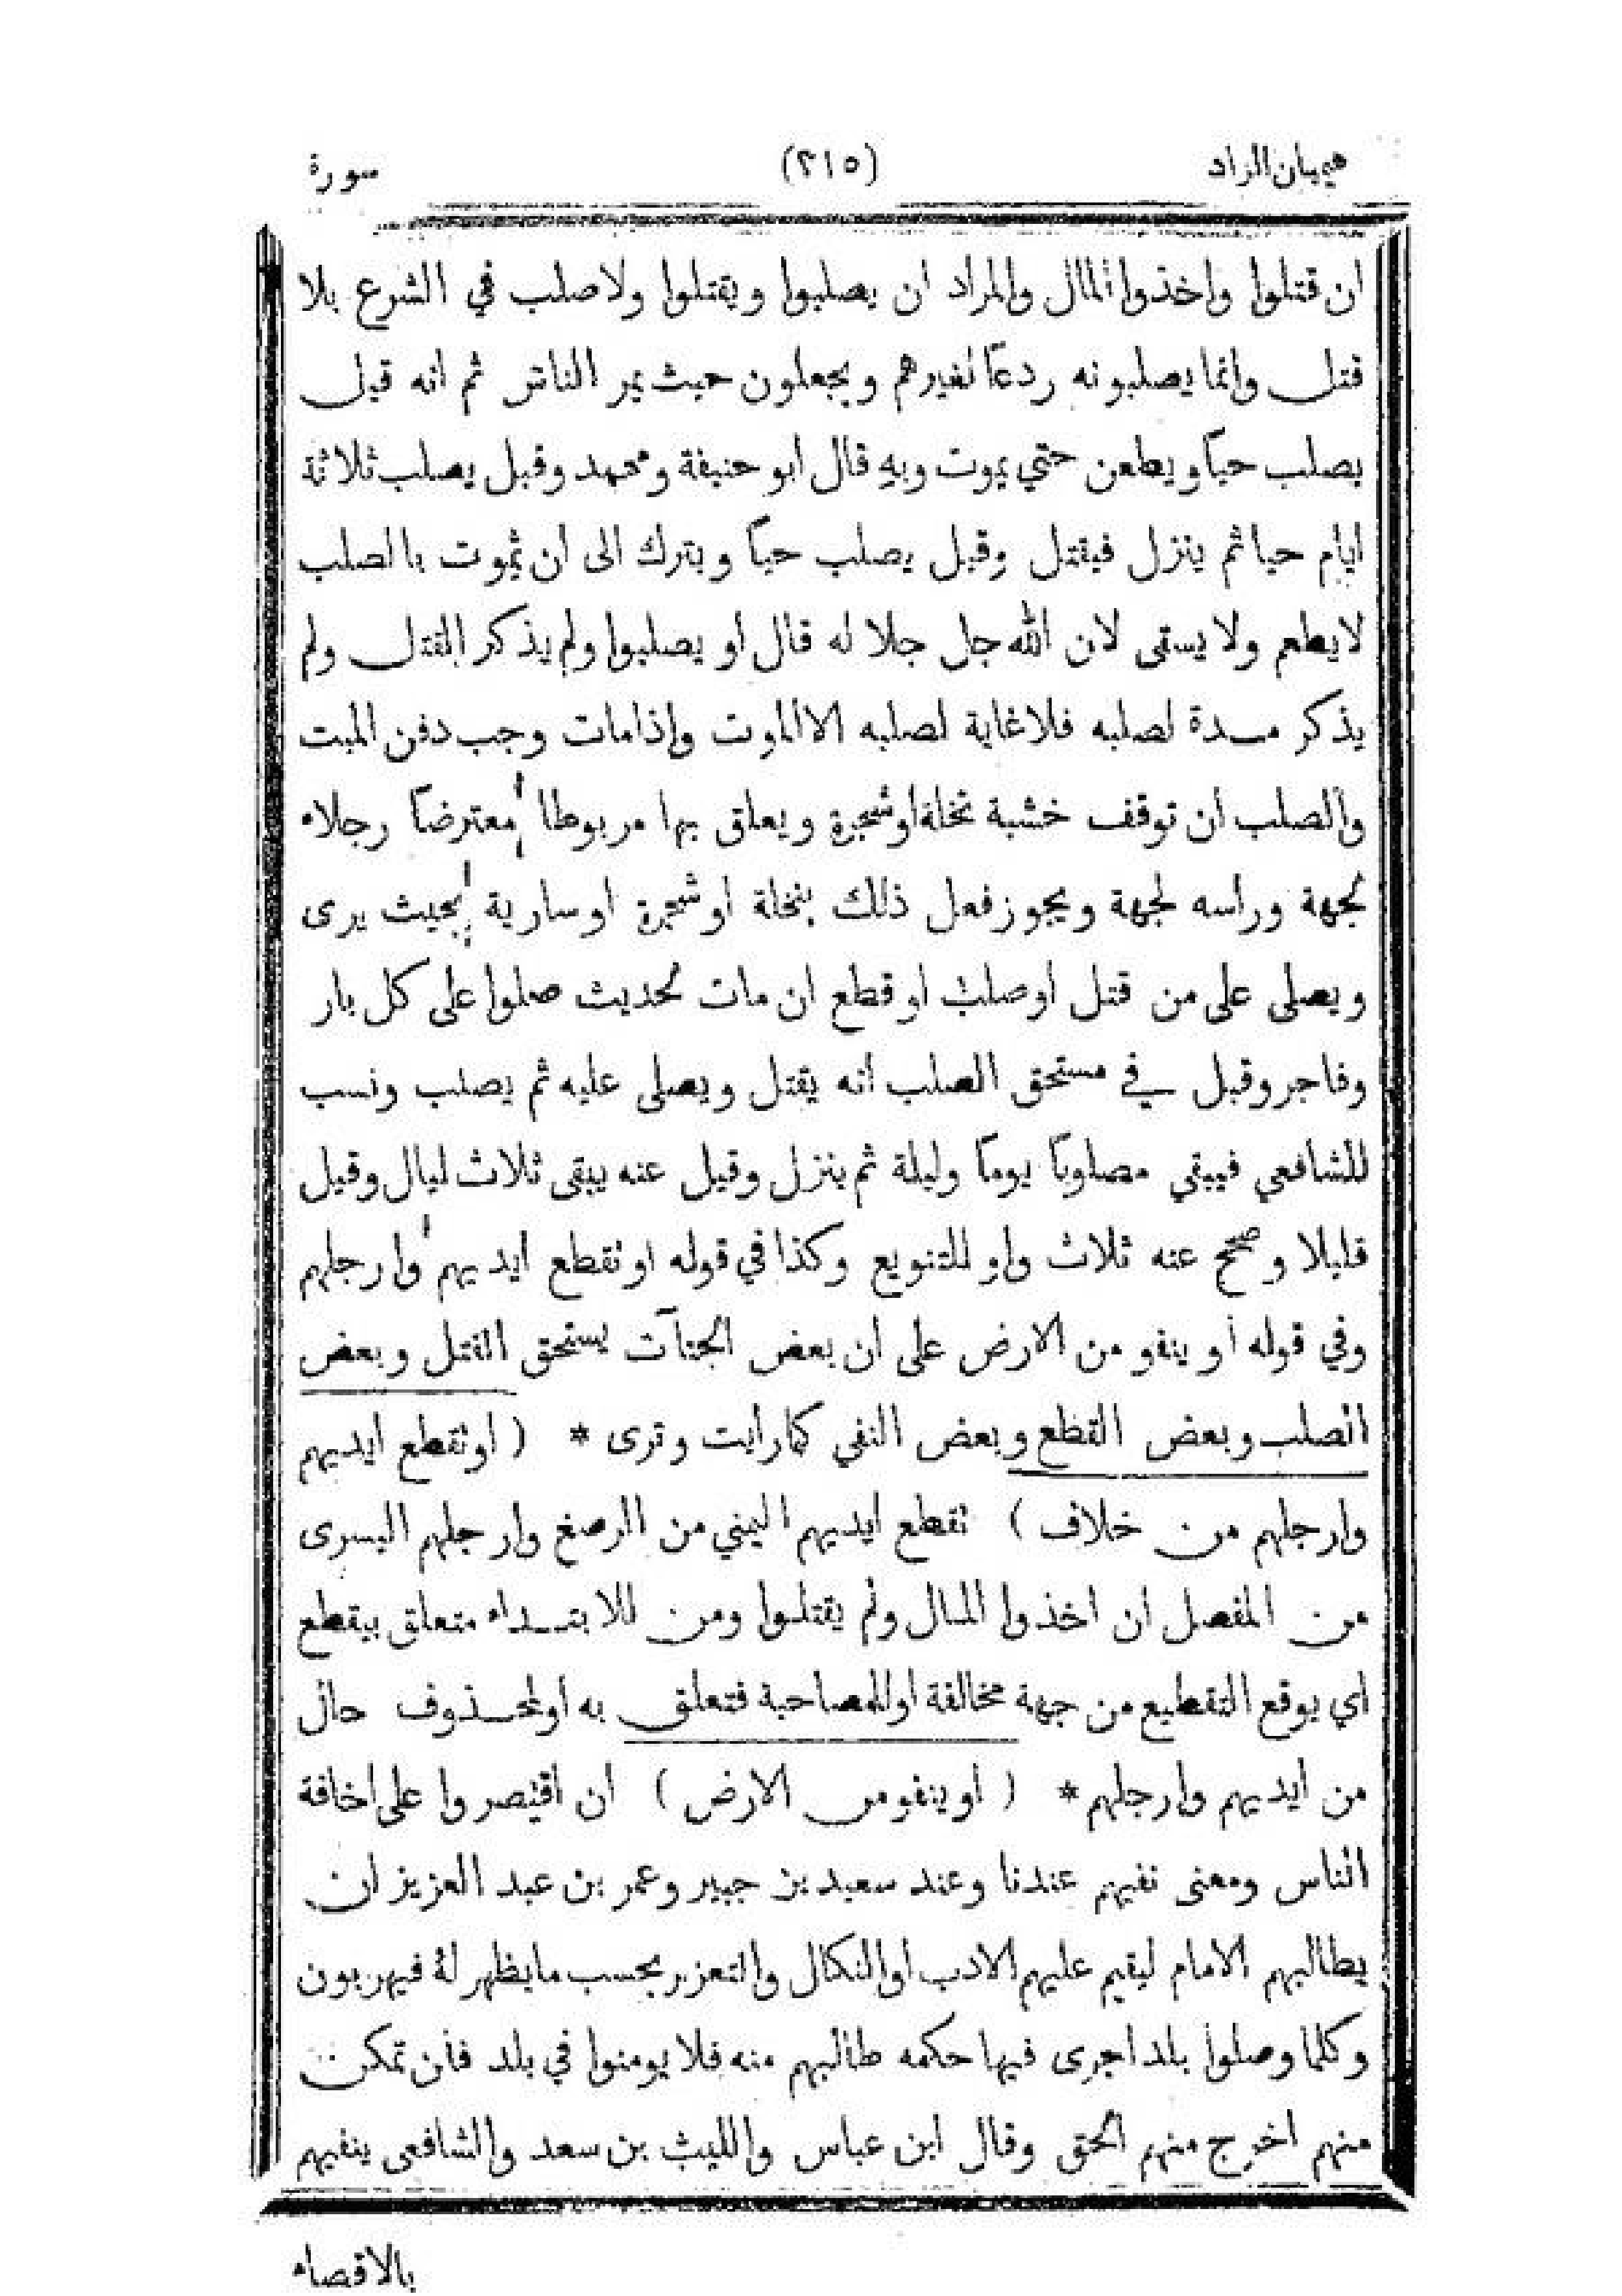 هيميان الزاد (٢١٥) سورة
ان قتلوا واخذوا المال والمراد ان يصلبوا ويقتلوا ولا صلب في الشرع بلا
قتل وانما يصلبونه ردعاً لغيرهم ويجعلون حيث يمر الناس ثم انه قيل
يصلب حياً ويطعن حتي يموت وبه قال ابو حنيفة ومحمد وقيل يصلب ثلاثة
ايام حيا ثم ينزل فيقتل وقيل يصلب حياً ويترك الى ان يموت بالصلب
لا يطعم ولا يسقى لان الله جل جلاله قال او يصلبوا ولم يذكر القتل ولم
يذكر مدة لصلبه فلا غاية لصلبه الا الموت واذا مات وجب دفن الميت
والصلب ان توقف خشبة نخلة او شجرة ويعلق بها مربوطا معترضاً رجلاه
لجهة وراسه لجهة ويجوز فعل ذلك بنخلة او شجرة او سارية بحيث يرى
ويصلى على من قتل او صلب او قطع ان مات لحديث صلوا على كل بار
وفاجر وقيل في مستحق الصلب انه يقتل ويصلى عليه ثم يصلب ونسب
للشافعي فيبقي مصلوباً يوماً وليلة ثم ينزل وقيل عنه يبقى ثلاث ليال وقيل
قليلا وصحح عنه ثلاث واو للتنويع وكذا في قوله او تقطع ايديهم وارجلهم
وفي قوله أو ينفو من الارض على ان بعض الجنآت يستحق القتل وبعض
الصلب وبعض القطع وبعض النفي كما رايت وترى * ( او تقطع ايديهم
وارجلهم من خلاف ) تقطع ايديهم اليمني من الرصغ وارجلهم اليسرى
من المفصل ان اخذوا المال ولم يقتلوا ومن للابتداء متعلق بيقطع
اي يوقع التقطيع من جهة مخالفة او للمصاحبة فتعلق به أو لمحذوف حال
من ايديهم وارجلهم * ( أو ينفو من الارض ) ان اقتصروا على اخافة
الناس ومعنى نفيهم عندنا وعند سعيد بن جبير وعمر بن عبد العزيز ان
يطالبهم الامام ليقيم عليهم الادب او النكال والتعزر بحسب ما يظهر له فيهربون
وكلما وصلوا بلد اجرى فيها حكمه طالبهم منه فلا يومنوا في بلد فان تمكن
منهم اخرج منهم الحق وقال ابن عباس والليث بن سعد والشافعى ينفيهم
بالاقصاء